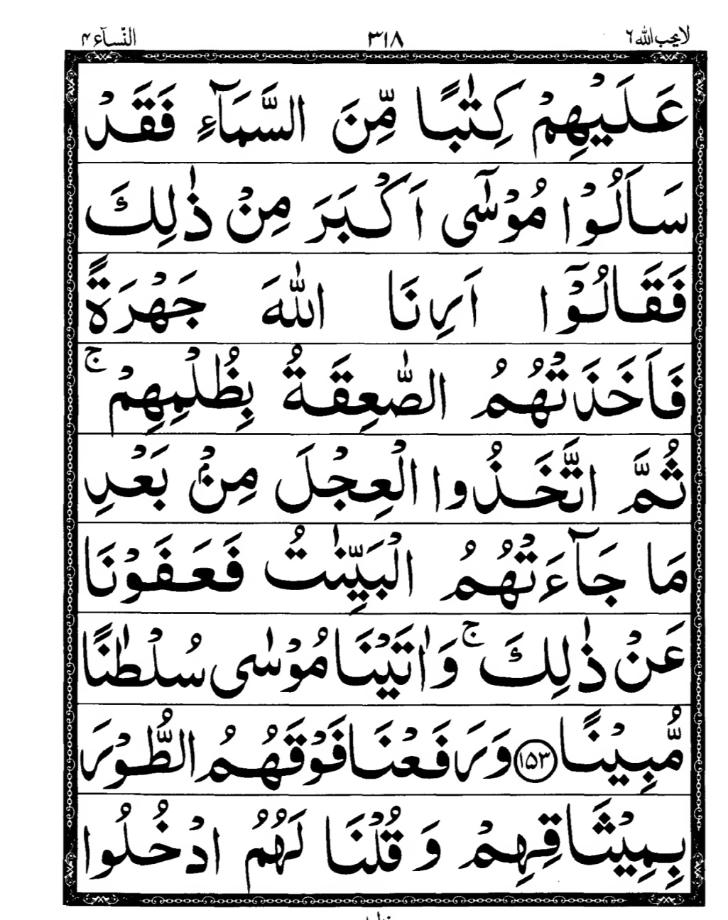 لا يحب الله ٦ ٣١٨ النسآء ٤
عَلَيْهِمْ كِتٰبًا مِّنَ السَّمَآءِ فَقَدْ
سَاَلُوْا مُوْسٰۤى اَكْبَرَ مِنْ ذٰلِكَ
فَقَالُوْۤا اَرِنَا اللّٰهَ جَهْرَةً
فَاَخَذَتْهُمُ الصّٰعِقَةُ بِظُلْمِهِمْ ۚ
ثُمَّ اتَّخَذُوا الْعِجْلَ مِنْۢ بَعْدِ
مَا جَآءَتْهُمُ الْبَيِّنٰتُ فَعَفَوْنَا
عَنْ ذٰلِكَ ۚ وَاٰتَيْنَا مُوْسٰى سُلْطٰنًا
مُّبِيْنًا ﴿١٥٣﴾ وَرَفَعْنَا فَوْقَهُمُ الطُّوْرَ
بِمِيْثَاقِهِمْ وَ قُلْنَا لَهُمُ ادْخُلُوا